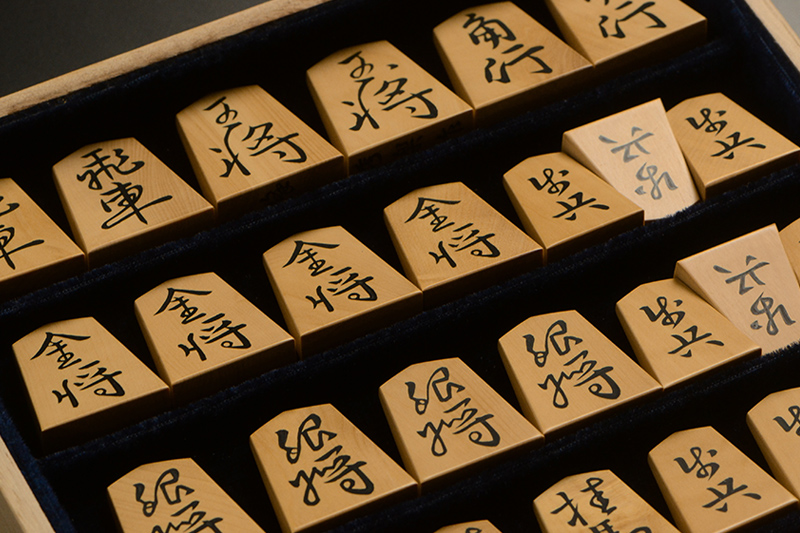 飛車
飛車
王将
玉将
角行
角行
金将
金将
金将
金将
歩兵
歩兵
歩兵
銀将
銀将
銀将
銀将
歩兵
歩兵
桂馬
歩兵